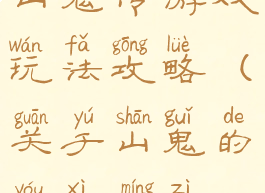 山鬼传游戏
wán fǎ gōng lüè
玩法攻略（
guān yú shān guǐ de
关于山鬼的
yóu xì míng zì